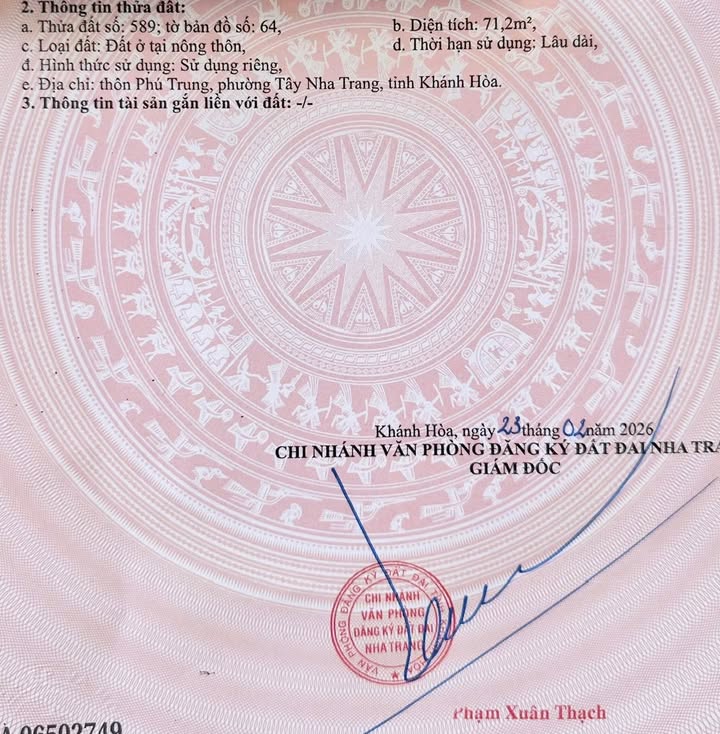 2. Thông tin thửa đất:
a. Thửa đất số: 589; tờ bản đồ số: 64, b. Diện tích: 71,2m²,
c. Loại đất: Đất ở tại nông thôn, d. Thời hạn sử dụng: Lâu dài,
đ. Hình thức sử dụng: Sử dụng riêng,
e. Địa chỉ: thôn Phú Trung, phường Tây Nha Trang, tỉnh Khánh Hòa.
3. Thông tin tài sản gắn liền với đất: -/-
Khánh Hòa, ngày 23 tháng 02 năm 2026
CHI NHÁNH VĂN PHÒNG ĐĂNG KÝ ĐẤT ĐAI NHA TRA
GIÁM ĐỐC
VĂN PHÒNG ĐĂNG KÝ ĐẤT ĐAI
CHI NHÁNH
VĂN PHÒNG
ĐĂNG KÝ ĐẤT ĐAI
NHA TRANG
Phạm Xuân Thạch
06502749